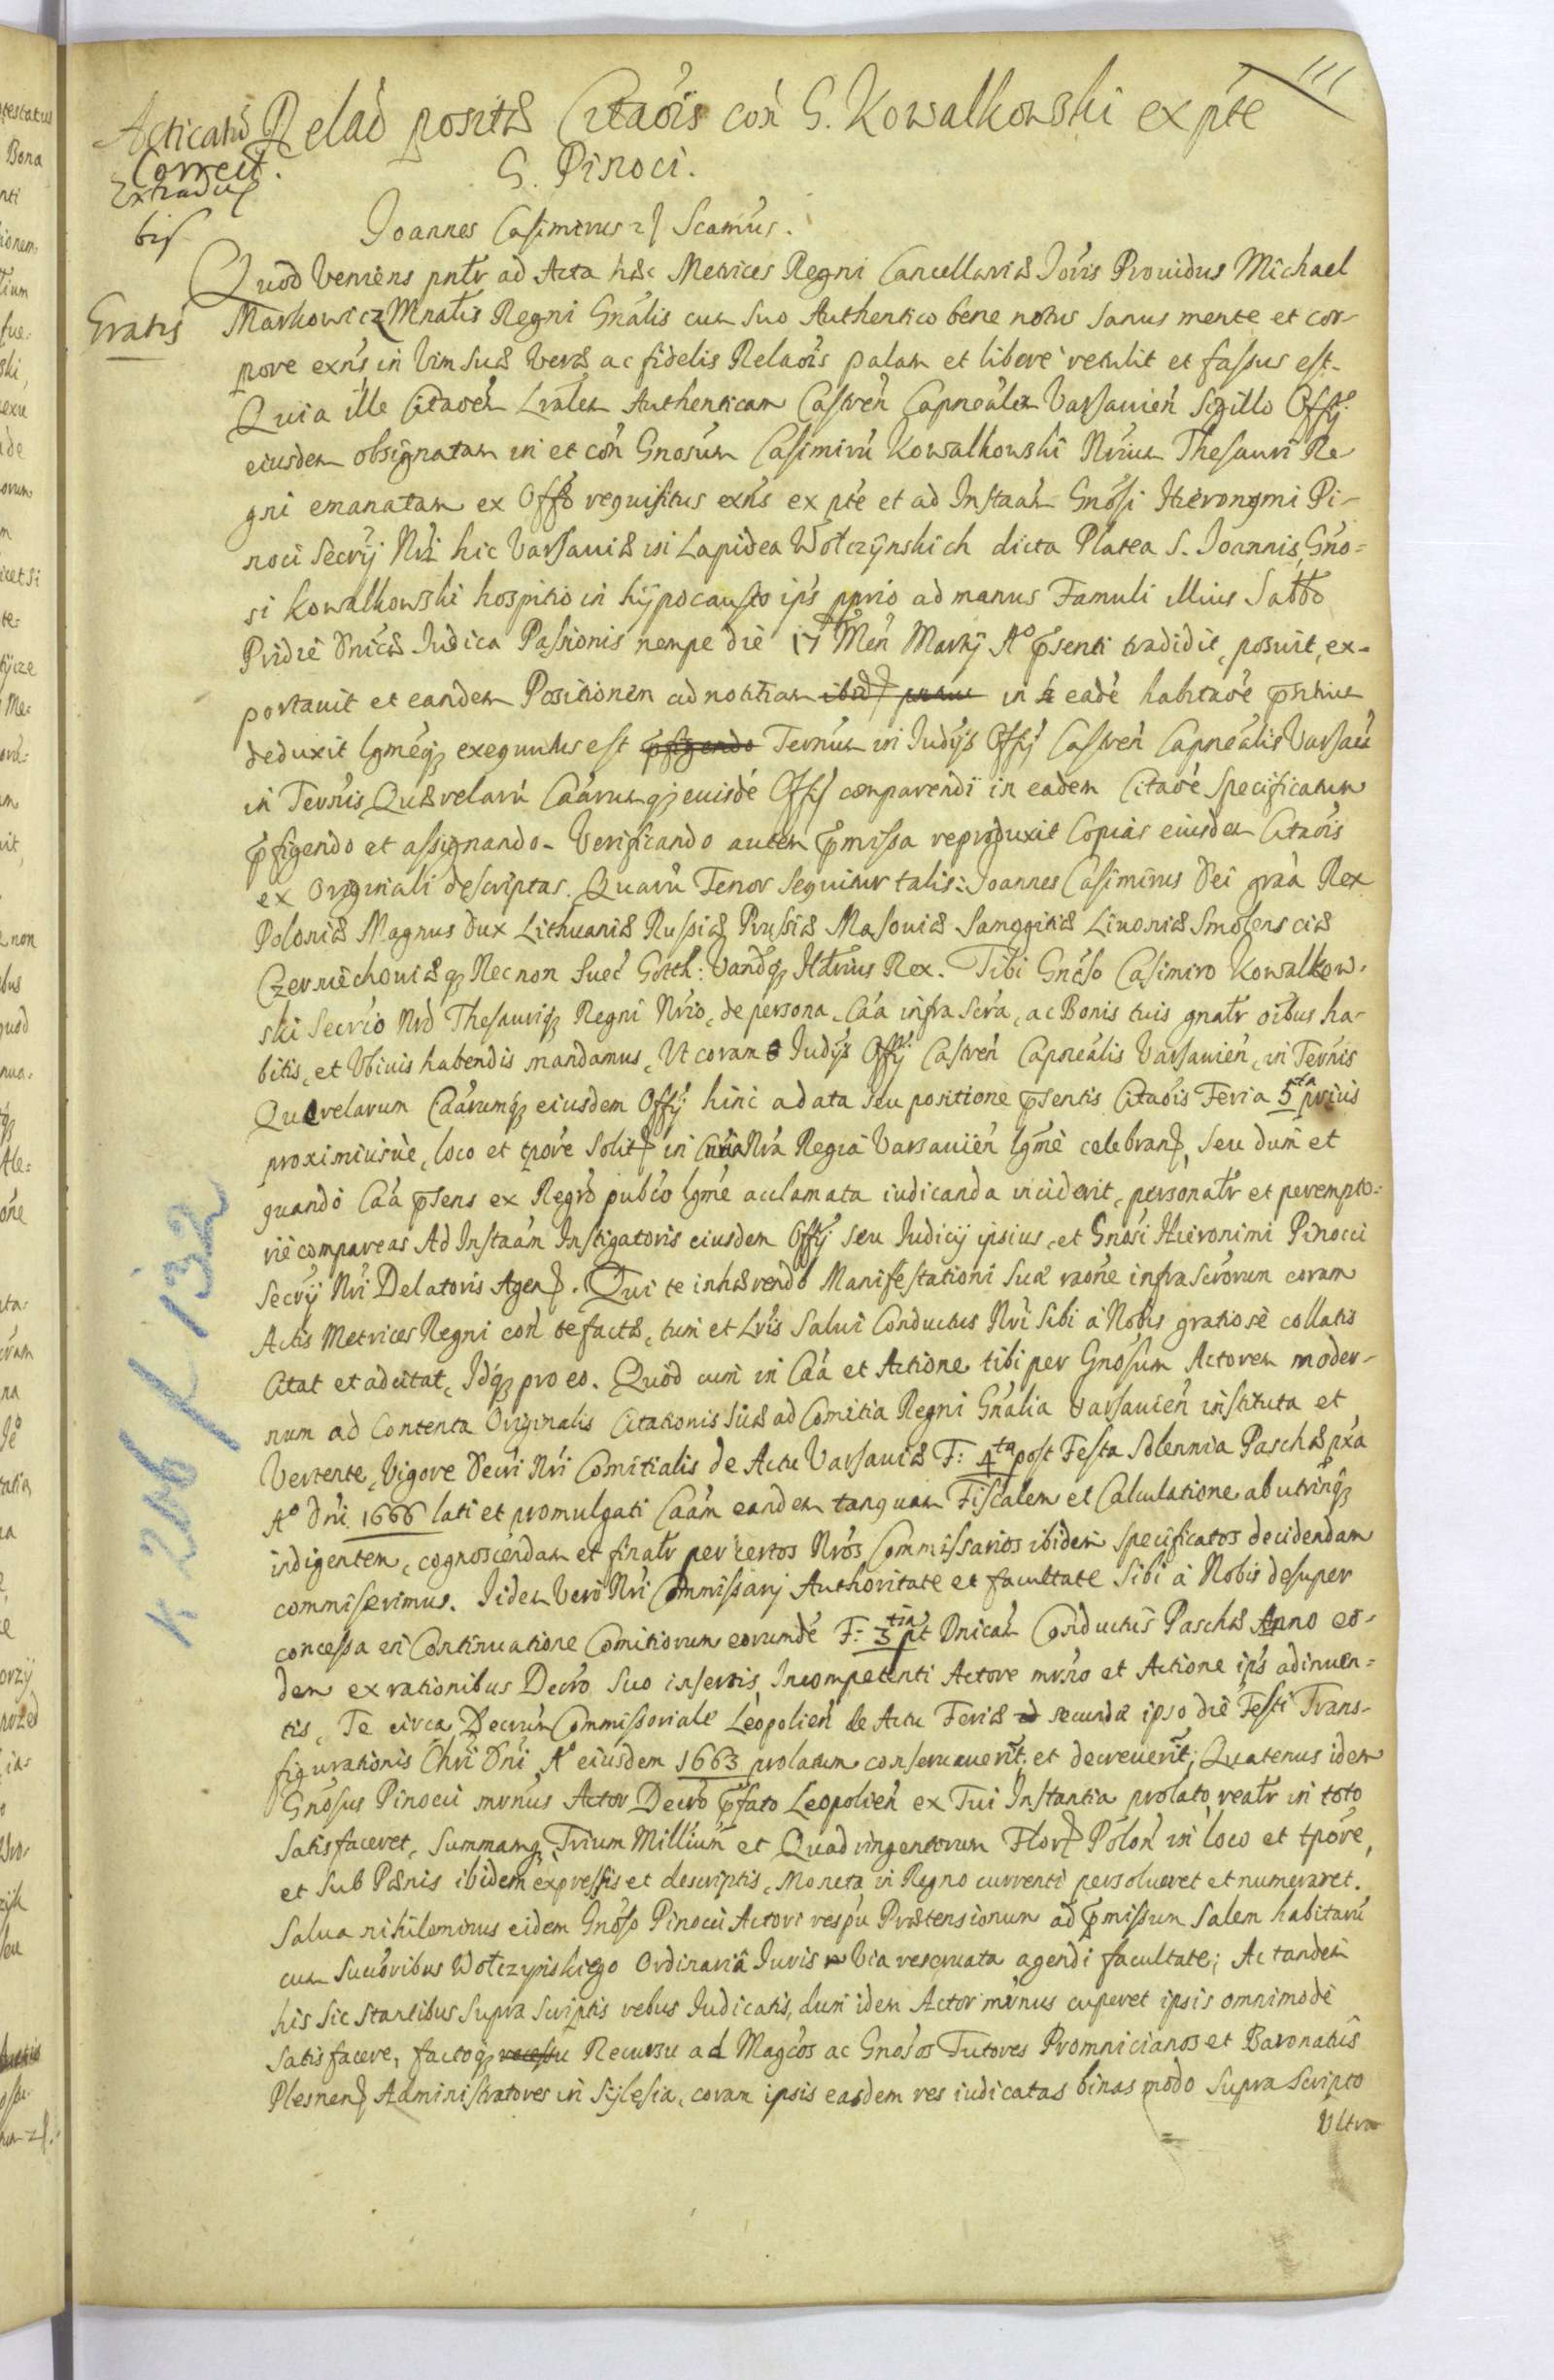 111
Acticatũ Relaõ positæ Citaõis coń G. Kowalkowski ex pte
Correct. G. Pinoci.
Extradit
bis Joannes Casimirus Scamus.
Quod Veniens pntr ad Acta hæc Metrices Regni Cancellariæ Joris Prouidus Michael
Gratis Markowicz Mnalis Regni Gnalis cum suo Authentico bene notus sanus mente et cor-
pore exns in Vim suæ Veræ ac fidelis Relaois palam et libere retulit et fassus est.
Quia ille Citaoem Lralem Authenticam Castren Capnealem Varsauien Sigillo Offij
eiusdem obsignatam in et con Gnosum Casimiru Kowalkowski Nrium Thesauri Re
gni emanatam ex Offo requisitus exns ex pte et ad Instaam Gnosi Hieronymi Pi-
noci Secrij Nri hic Varsauiæ in Lapidea Wołczynskich dicta Platea S. Joannis, Gno=
si Kowalkowski hospitio in hypocausto ips pprio ad manus Famuli illius Sabbo
Pridie Dnicæ Judica Passionis nempe die 17 Men Martij A° psenti tradidit, posuit, ex-
portauit et eandem Positionem ad notitiam in eade habitaoe pntium
deduxit lgmeq exequutus est Ternum in Judijs Offij Castren Capnealis Varsauien
in Ternis Quærelaru Caarumq euisde Offij comparendi in eadem Citaoe specificatum
pfigendo et assignando. Verificando autem pmissa reproduxit Copias eiusdem Citaois
ex Originali descriptas. Quaru Tenor sequitur talis: Joannes Casimirus Dei graa Rex
Poloniæ Magnus Dux Lithuaniæ Russiæ Prussiæ Masouiæ Samogitiæ Liuoniæ Smolensciæ
Czerniechouiæq Necnon Suec Gotth: Vandq Hdrius Rex. Tibi Gnoso Casimiro Kowalkow-
ski Secrio Nro Thesauriq Regni Nrio, de persona, Caa infra scra, ac Bonis tuis gnalr oibus ha-
bitis, et Vbiuis habendis mandamus, Vt coram Judijs Offij Castren Capnealis Varsauien, in Ternis
Querelarum Caarumq eiusdem Offij hinc a data seu positione psentis Citaois Feria 5ta prius
proximiusue, loco et tpore solit in Curia Nra Regia Varsauien lgme celebran, seu dum et
quando Caa psens ex Regro pubco lgme acclamata iudicanda inciderit, personalr et perempto=
rie compareas Ad Instaam Instigatoris eiusdem Offij seu Judicij ipsius, et Gnosi Hieronimi Pinocci
Secrij Nri Delatoris Agen. Qui te inhærendo Manifestationi suæ raone infra scrorum coram
Actis Metrices Regni con te factæ, tum et Lris Salui Conductus Nri sibi a Nobis gratiose collatis
Citat et adcitat, Idq pro eo. Quod cum in Caa et Actione tibi per Gnosum Actorem moder-
num ad Contenta Originalis Citationis suæ ad Comitia Regni Gnalia Varsauien instituta et
Vertente, Vigore Decri Nri Comitialis de Actu Varsauiæ F: 4ta post Festa Solennia Paschæ pxa
A° Dni 1666 lati et promulgati Caam eandem tanquam Fiscalem et Calculatione ab utrinq
indigentem, cognoscendam et finalr per certos Nros Commissarios ibidem specificatos decidendam
commiserimus. Iidem Vero Nri Commissarij Authoritate et facultate sibi a Nobis desuper
concessa in Continuatione Comitiorum eorumde F: 3tia pt Dnicam Conductus Paschæ Anno eo-
dem ex rationibus Decro suo insertis, Incompetenti Actore mrno et Actione ips adinuen=
tis, Te circa Decrum Commissoriale Leopolien de Actu Feriæ secundæ ipso die Festi Trans-
figurationis Chri Dni A° eiusdem 1663 prolatum conseruauerit, et decreuerit; Quatenus idem
Gnosus Pinocci mrnus Actor Decro pfato Leopolien ex Tui Instantia prolato, realr in toto
satisfaceret, Summamq Trium Millium et Quadringentorum Flor Polon in loco et tpore,
et sub Pænis ibidem expressis et descriptis, Moneta in Regno currenti persolueret et numeraret.
Salua nihilominus eidem Gnoso Pinocci Actori respu Prætensionum ad pmissum Salem habitaru
cum Succoribus Wołczynskiego Ordinaria Juris Via reseruata agendi facultate; Ac tandem
his sic stantibus supra scriptis rebus Judicatis, dum idem Actor mrnus cuperet ipsis omnimode
satisfacere, factoq Recursu ad Magcos ac Gnosos Tutores Promnicianos et Baronatus
Plesnen Administratores in Sylesia, coram ipsis easdem res iudicatas binas modo supra scripto
Vltra
K 206 K 132